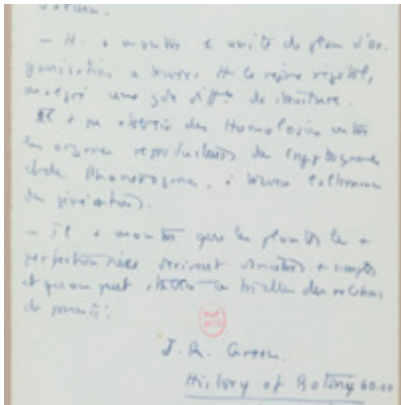 — H. a montré l'unité de plan d'or-
ganisation à travers tt le règne végétal,
malgré une gde diff. de structure.
Il a pu établir des Homologies entre
les organes reproducteurs des cryptogames
et des Phanérogames, à travers l'alternance
des générations.
— Il a montré que les plantes les +
perfectionnées dérivent + simples
et qu'on peut établir des relations
de parenté.
J. R. Green.
History of Botany 60.00